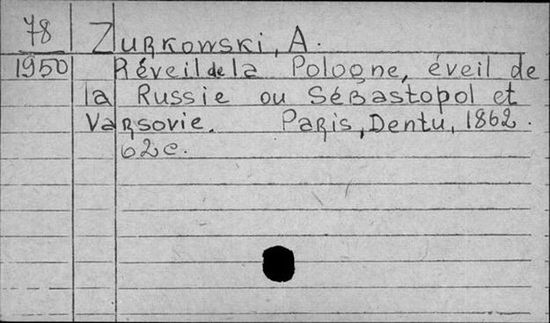 78
Zurkowski, A.
1950
Réveil de la Pologne, éveil de
la Russie ou Sébastopol et
Varsovie. Paris, Dentu, 1862.
62c.